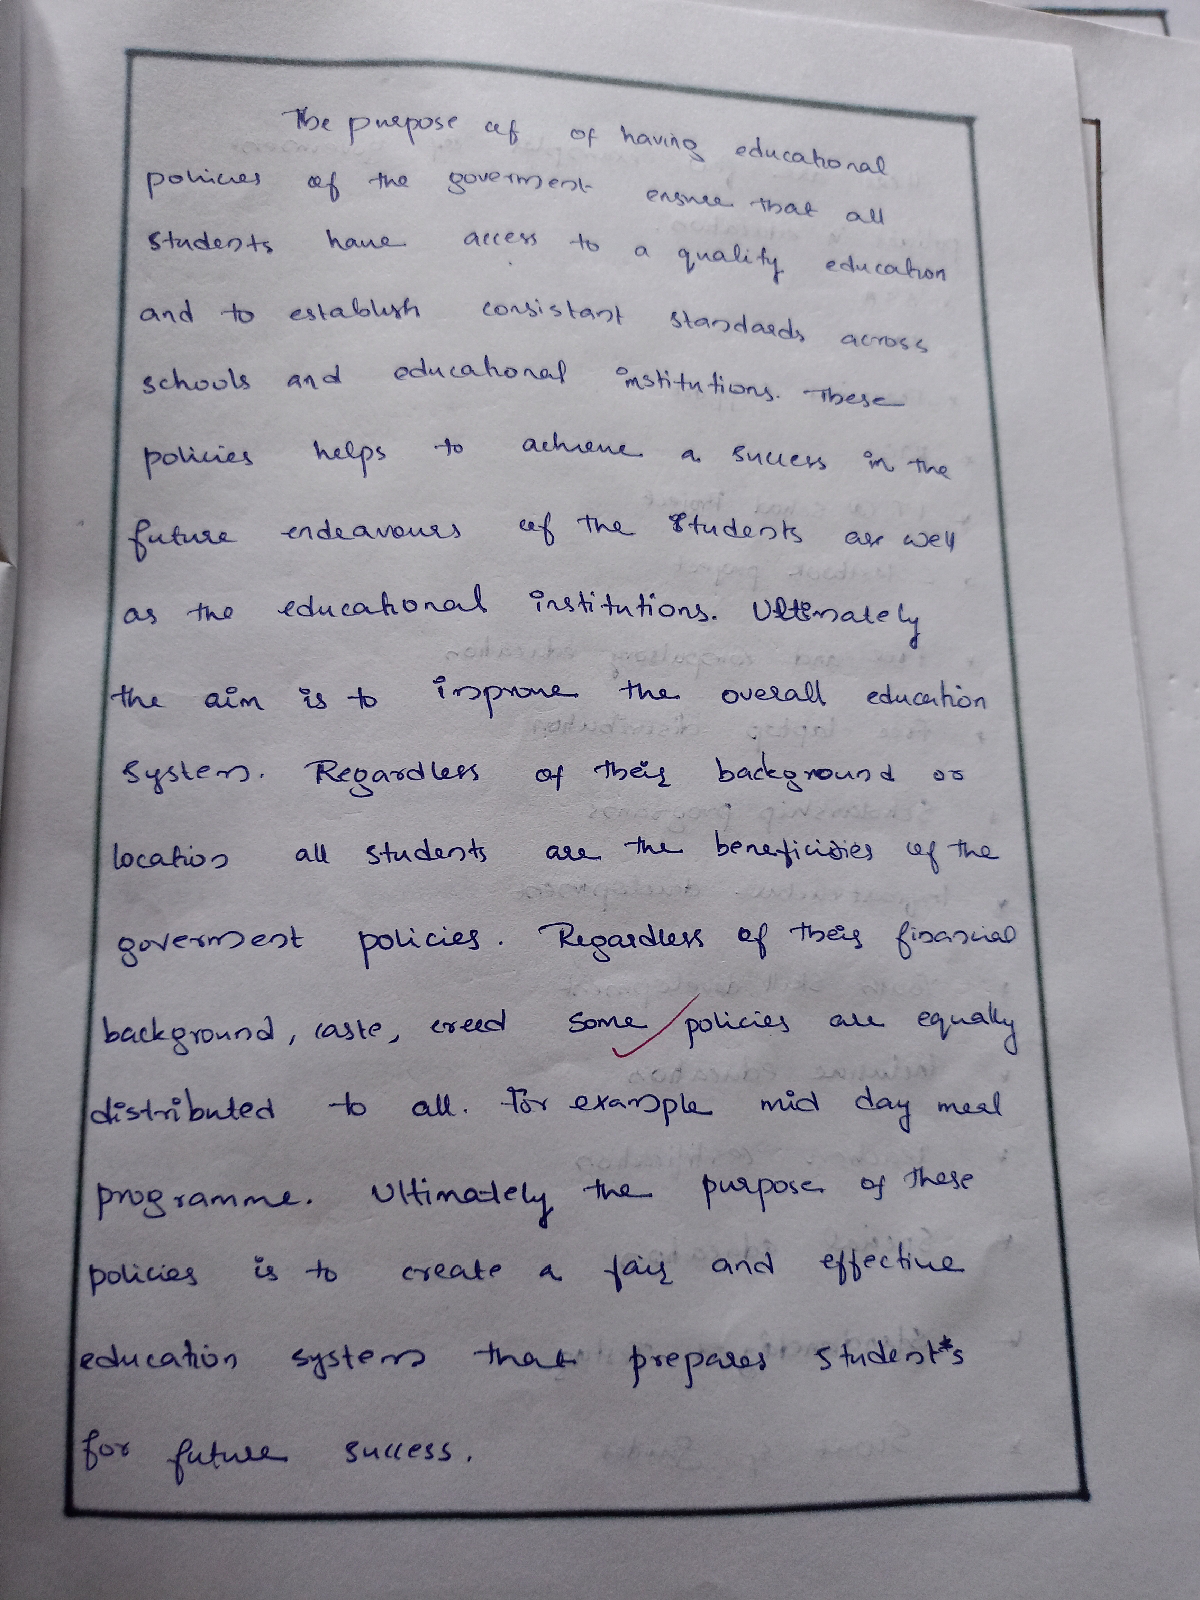 The purpose of of having educational
policies of the goverment ensure that all
students have access to a quality education
and to establish consistant standards across
schools and educational institutions. These
policies helps to achieve a success in the
future endeavours of the students as well
as the educational institutions. Ultimately
the aim is to improve the overall education
system. Regardless of their background or
location all students are the beneficiries of the
goverment policies. Regardless of their financial
background, caste, creed some policies are equally
distributed to all. For example mid day meal
programme. Ultimately the purpose of these
policies is to create a fair and effective
education system that prepares student's
for future success.